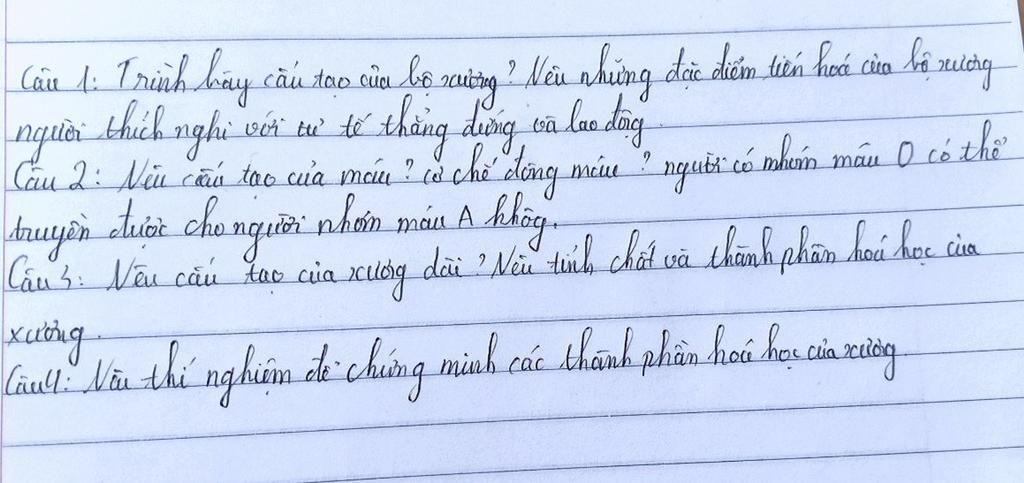 Câu 1: Trình bày cấu tạo của bộ xương? Nêu những đặc điểm tiến hoá của bộ xương
người thích nghi với tư tế thẳng đứng và lao động.
Câu 2: Nêu cấu tạo của máu? cơ chế đông máu? người có nhóm máu O có thể
truyền được cho người nhóm máu A không.
Câu 3: Nêu cấu tạo của xương dài? Nêu tính chất và thành phần hoá học của
xương.
Câu 4: Nêu thí nghiệm để chứng minh các thành phần hoá học của xương.